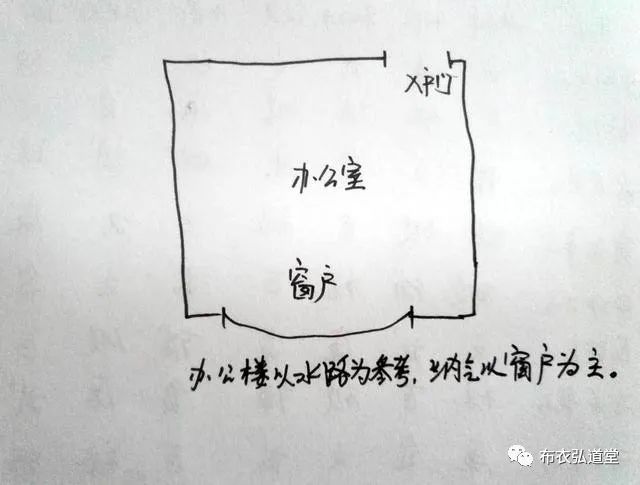 入户门
办公室
窗户
办公楼以水路为参考,以纳气以窗户为主。
布衣弘道堂